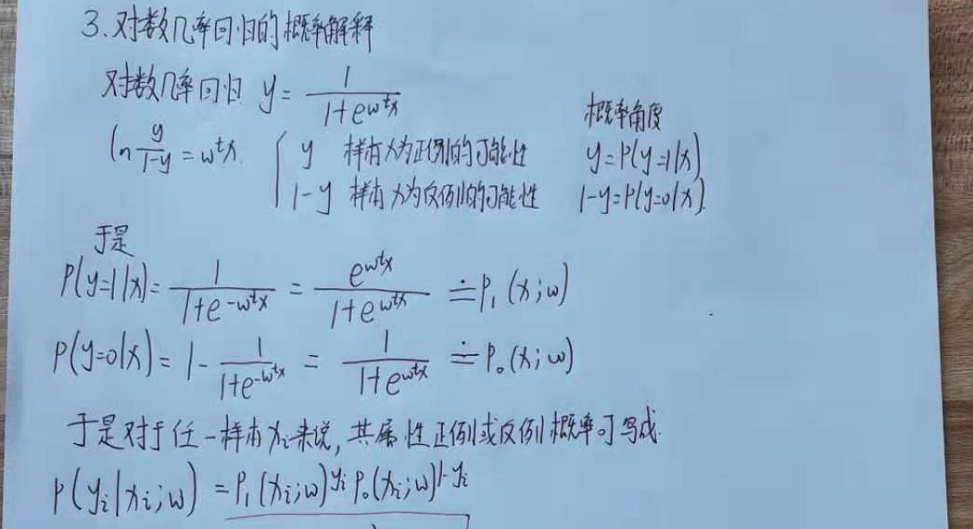 3.对数几率回归的概率解释
对数几率回归 y = 1/(1+e^{wᵗx})
概率角度
ln y/(1-y) = wᵗx { y 样本x为正例的可能性 y=P(y=1|x)
1-y 样本x为反例的可能性 1-y=P(y=0|x)
于是
P(y=1|x) = 1/(1+e^{-wᵗx}) = e^{wᵗx}/(1+e^{wᵗx}) ≐ P₁(x;w)
P(y=0|x) = 1 - 1/(1+e^{-wᵗx}) = 1/(1+e^{wᵗx}) ≐ P₀(x;w)
于是对于任一样本xᵢ来说,共属性正例或反例概率可写成
P(yᵢ|xᵢ;w) = P₁(xᵢ;w)^{yᵢ} P₀(xᵢ;w)^{1-yᵢ}